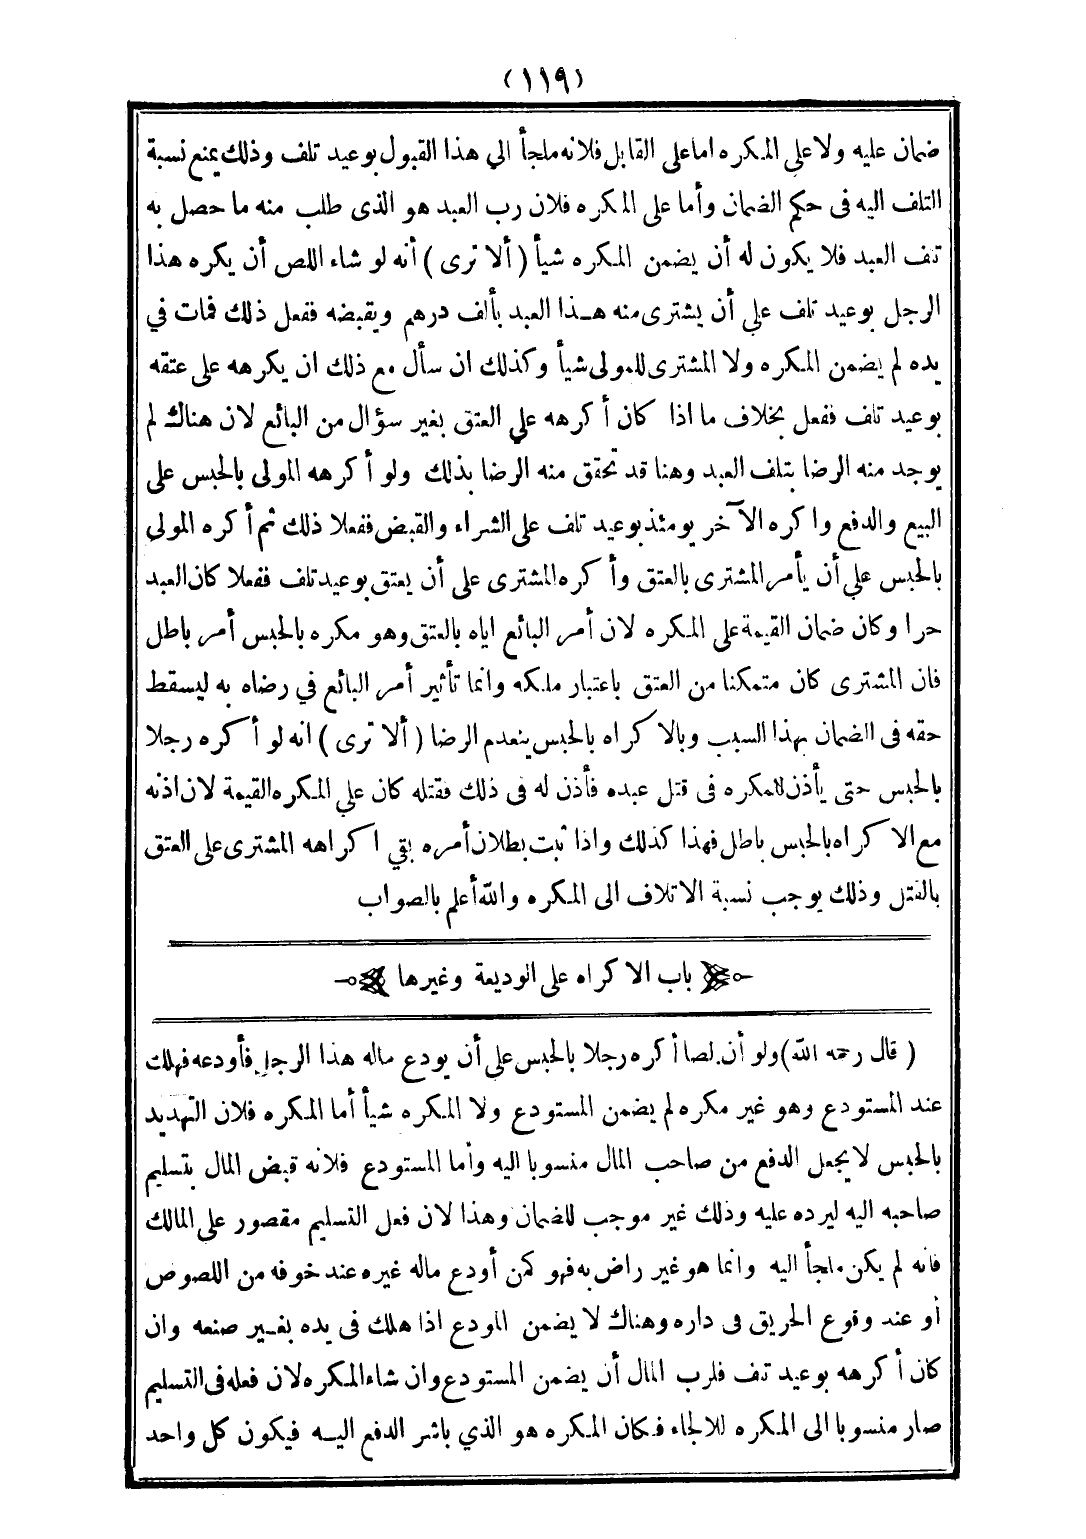 (١١٩)
ضمان عليه ولا على المكره اما على القابل فلانه ملجأ الي هذا القبول بوعيد تلف وذلك يمنع نسبة
التلف اليه فى حكم الضمان وأما على المكره فلان رب العبد هو الذى طلب منه ما حصل به
تلف العبد فلا يكون له أن يضمن المكره شيأ ( ألا ترى ) أنه لو شاء اللص أن يكره هذا
الرجل بوعيد تلف على أن يشترى منه هذا العبد بألف درهم ويقبضه ففعل ذلك فمات في
يده لم يضمن المكره ولا المشترى للمولى شيأ وكذلك ان سأل مع ذلك ان يكرهه على عتقه
بوعيد تلف ففعل بخلاف ما اذا كان أكرهه علي العتق بغير سؤال من البائع لان هناك لم
يوجد منه الرضا بتلف العبد وهنا قد تحقق منه الرضا بذلك ولو أكرهه المولى بالحبس على
البيع والدفع واكره الآخر يومئذ بوعيد تلف على الشراء والقبض ففعلا ذلك ثم أكره المولى
بالحبس علي أن يأمر المشترى بالعتق وأكره المشترى على أن يعتق بوعيد تلف ففعلا كان العبد
حرا وكان ضمان القيمة على المكره لان أمر البائع اياه بالعتق وهو مكره بالحبس أمر باطل
فان المشترى كان متمكنا من العتق باعتبار ملكه وانما تأثير أمر البائع في رضاه به ليسقط
حقه فى الضمان بهذا السبب وبالاكراه بالحبس ينعدم الرضا ( ألا ترى ) انه لو أكره رجلا
بالحبس حتى يأذن للمكره فى قتل عبده فأذن له فى ذلك فقتله كان علي المكره القيمة لان اذنه
مع الاكراه بالحبس باطل فهذا كذلك واذا ثبت بطلان أمره بقي اكراهه المشترى على العتق
بالقتل وذلك يوجب نسبة الاتلاف الى المكره والله أعلم بالصواب
باب الاكراه على الوديعة وغيرها
( قال رحمه الله) ولو أن لصا أكره رجلا بالحبس على أن يودع ماله هذا الرجل فأودعه فهلك
عند المستودع وهو غير مكره لم يضمن المستودع ولا المكره شيأ أما المكره فلان التهديد
بالحبس لا يجعل الدفع من صاحب المال منسوبا اليه وأما المستودع فلانه قبض المال بتسليم
صاحبه اليه ليرده عليه وذلك غير موجب للضمان وهذا لان فعل التسليم مقصور على المالك
فانه لم يكن ملجأ اليه وانما هو غير راض به فهو كمن أودع ماله غيره عند خوفه من اللصوص
أو عند وقوع الحريق فى داره وهناك لا يضمن المودع اذا هلك فى يده بغير صنعه وان
كان أكرهه بوعيد تلف فلرب المال أن يضمن المستودع وان شاء المكره لان فعله فى التسليم
صار منسوبا الى المكره للالجاء فكان المكره هو الذي باشر الدفع اليه فيكون كل واحد